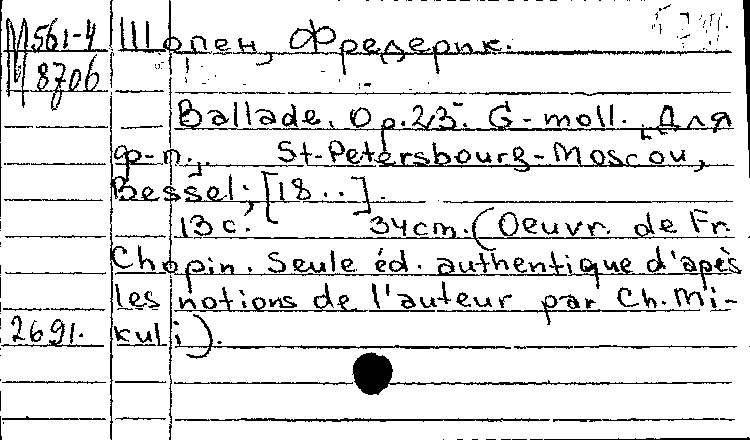 М 561-4 Шопен, Фредерик.
М 8706
Ballade. Op. 23. G-moll. [Для
ф-п.]. St-Petersbourg-Moscou,
Bessel; [18..].
13 с. 34 cm. (Oeuvr. de Fr.
Chopin. Seule éd. authentique d'apès
les notions de l'auteur par Ch. Mi-
2691. kuli).